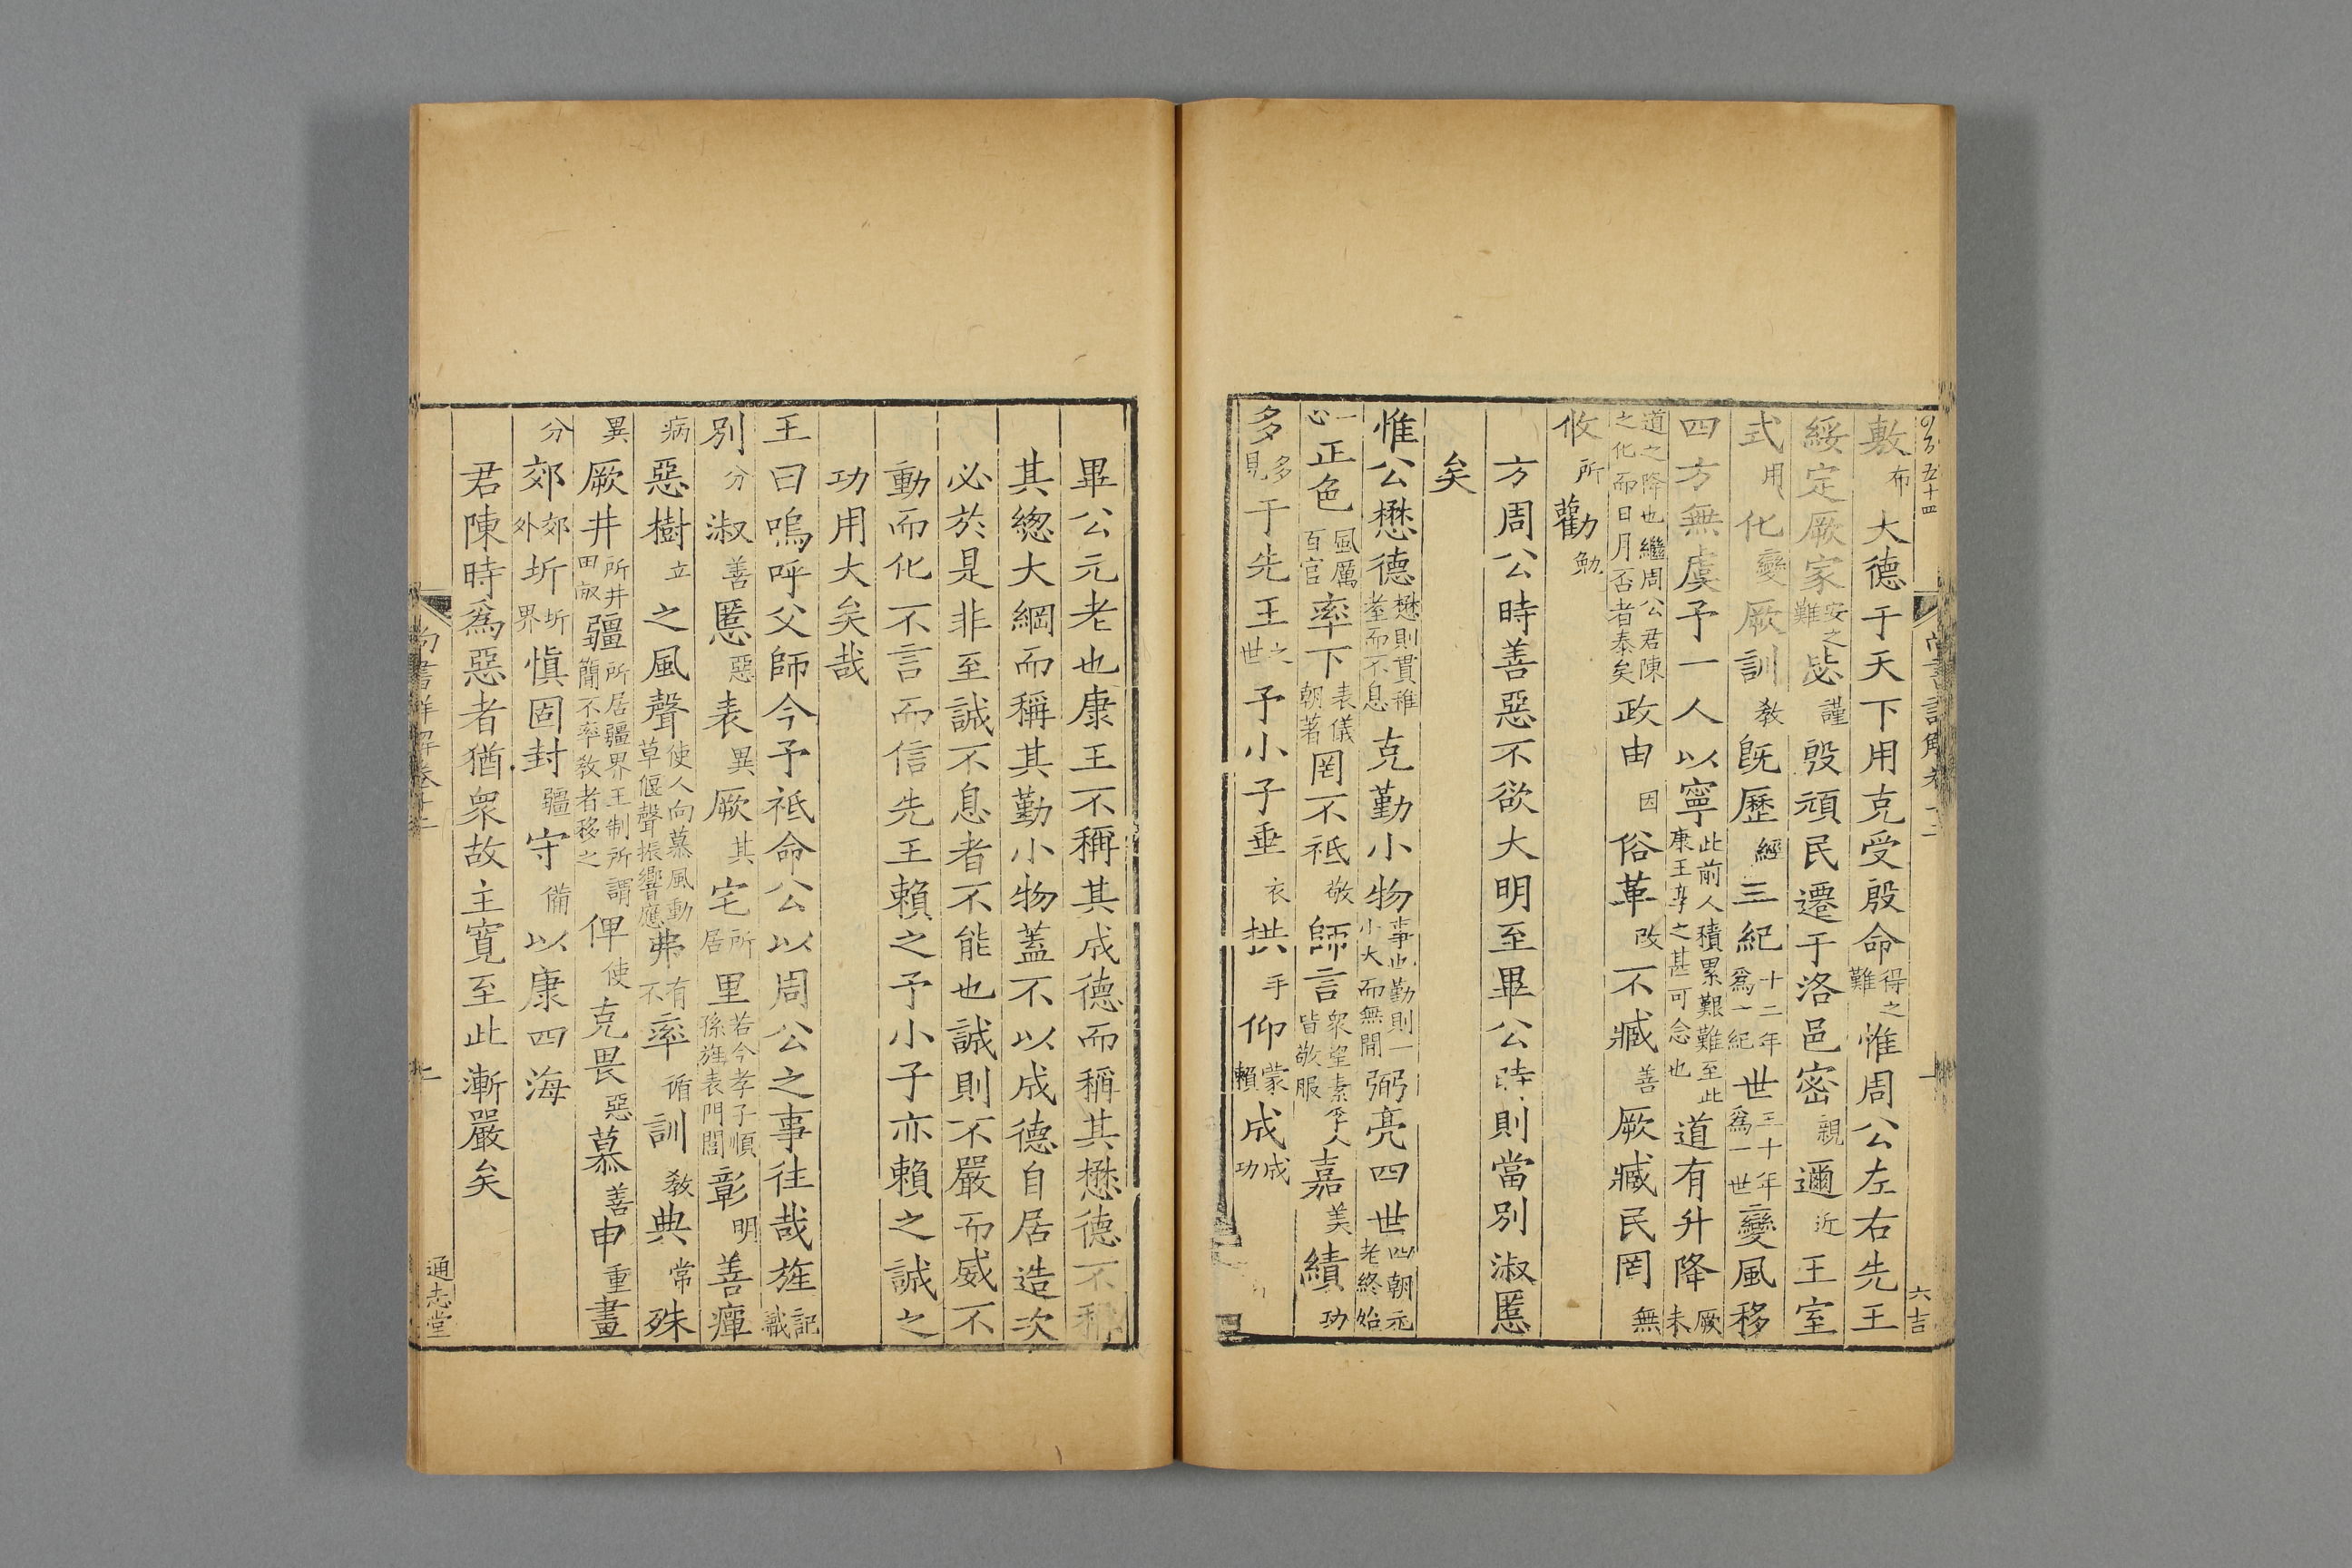 敷布大德于天下用克受殷命得之難惟周公左右先王
綏定厥家安之難毖謹殷頑民遷于洛邑密親邇近王室
式用化變厥訓敎旣歷經三紀十二年爲一紀世三十年爲一世變風移
四方無虞予一人以寧此前人積累艱難至此康王享之甚可念也道有升降厥未
道之降也繼周公君陳之化而日月否者泰矣政由因俗革改不臧善厥臧民罔無
攸所勸勉
方周公時善惡不欲大明至畢公時則當別淑慝
矣
惟公懋德懋則貫稚耄而不息克勤小物事也勤則一小大而無間弼亮四世四朝元老終始
一心正色風厲百官率下表儀朝著罔不祗敬師言衆望素孚人皆敬服嘉美績功
多多見于先王之世予小子垂衣拱手仰蒙賴成成功
畢公元老也康王不稱其成德而稱其懋德不稱
其緫大綱而稱其勤小物蓋不以成德自居造次
必於是非至誠不息者不能也誠則不嚴而威不
動而化不言而信先王賴之予小子亦賴之誠之
功用大矣哉
王曰嗚呼父師今予祗命公以周公之事往哉旌記識
別分淑善慝惡表異厥其宅所居里若今孝子順孫旌表門閭彰明善癉
病惡樹立之風聲使人向慕風動草偃聲振響應弗有不率循訓敎典常殊
異厥井所井田畝疆所居疆界王制所謂簡不率敎者移之俾使克畏惡慕善申重畫
分郊郊外圻圻界愼固封疆守備以康四海
君陳時爲惡者猶衆故主寛至此漸嚴矣
尚書詳解卷十二
六吉
尚書詳解卷十二
通志堂